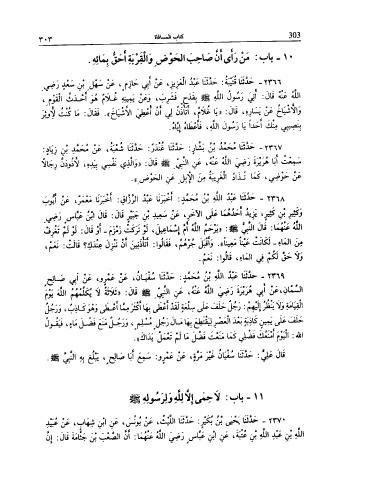 303 كتاب المساقاة ٣٠٣
١٠ - باب: مَنْ رَأَى أَنَّ صَاحِبَ الحَوْضِ وَالْقِرْبَةِ أَحَقُّ بِمَائِهِ.
٢٣٦٦ - حَدَّثَنَا قُتَيْبَةُ: حَدَّثَنَا عَبْدُ العَزِيزِ، عَنْ أَبِي حَازِمٍ، عَنْ سَهْلِ بْنِ سَعْدٍ رَضِيَ
اللَّهُ عَنْهُ قَالَ: أُتِيَ رَسُولُ اللَّهِ ﷺ بِقَدَحٍ فَشَرِبَ، وَعَنْ يَمِينِهِ غُلَامٌ هُوَ أَحْدَثُ الْقَوْمِ،
وَالأَشْيَاخُ عَنْ يَسَارِهِ، قَالَ: «يَا غُلَامُ، أَتَأْذَنُ لِي أَنْ أُعْطِيَ الأَشْيَاخَ». فَقَالَ: مَا كُنْتُ لأُوثِرَ
بِنَصِيبِي مِنْكَ أَحَدًا يَا رَسُولَ اللَّهِ، فَأَعْطَاهُ إِيَّاهُ.
٢٣٦٧ - حَدَّثَنَا مُحَمَّدُ بْنُ بَشَّارٍ: حَدَّثَنَا غُنْدَرٌ: حَدَّثَنَا شُعْبَةُ، عَنْ مُحَمَّدِ بْنِ زِيَادٍ:
سَمِعْتُ أَبَا هُرَيْرَةَ رَضِيَ اللَّهُ عَنْهُ، عَنِ النَّبِيِّ ﷺ قَالَ: «وَالَّذِي نَفْسِي بِيَدِهِ، لأَذُودَنَّ رِجَالاً
عَنْ حَوْضِي، كَمَا تُذَادُ الْغَرِيبَةُ مِنَ الإِبِلِ عَنِ الحَوْضِ».
٢٣٦٨ - حَدَّثَنَا عَبْدُ اللَّهِ بْنُ مُحَمَّدٍ: أَخْبَرَنَا عَبْدُ الرَّزَّاقِ: أَخْبَرَنَا مَعْمَرٌ، عَنْ أَيُّوبَ
وَكَثِيرِ بْنِ كَثِيرٍ، يَزِيدُ أَحَدُهُمَا عَلَى الآخَرِ، عَنْ سَعِيدِ بْنِ جُبَيْرٍ قَالَ: قَالَ ابْنُ عَبَّاسٍ رَضِيَ
اللَّهُ عَنْهُمَا: قَالَ النَّبِيُّ ﷺ: «يَرْحَمُ اللَّهُ أُمَّ إِسْمَاعِيلَ، لَوْ تَرَكَتْ زَمْزَمَ - أَوْ قَالَ: لَوْ لَمْ تَغْرِفْ
مِنَ المَاءِ - لَكَانَتْ عَيْنًا مَعِينًا. وَأَقْبَلَ جُرْهُمُ، فَقَالُوا: أَتَأْذَنِينَ أَنْ نَنْزِلَ عِنْدَكِ؟ قَالَتْ: نَعَمْ،
وَلَا حَقَّ لَكُمْ فِي المَاءِ، قَالُوا: نَعَمْ».
٢٣٦٩ - حَدَّثَنَا عَبْدُ اللَّهِ بْنُ مُحَمَّدٍ: حَدَّثَنَا سُفْيَانُ، عَنْ عَمْرٍو، عَنْ أَبِي صَالِحٍ
السَّمَّانِ، عَنْ أَبِي هُرَيْرَةَ رَضِيَ اللَّهُ عَنْهُ، عَنِ النَّبِيِّ ﷺ قَالَ: «ثَلَاثَةٌ لَا يُكَلِّمُهُمُ اللَّهُ يَوْمَ
القِيَامَةِ وَلَا يَنْظُرُ إِلَيْهِمْ: رَجُلٌ حَلَفَ عَلَى سِلْعَةٍ لَقَدْ أَعْطَى بِهَا أَكْثَرَ مِمَّا أَعْطَى وَهُوَ كَاذِبٌ، وَرَجُلٌ
حَلَفَ عَلَى يَمِينٍ كَاذِبَةٍ بَعْدَ العَصْرِ لِيَقْتَطِعَ بِهَا مَالَ رَجُلٍ مُسْلِمٍ، وَرَجُلٌ مَنَعَ فَضْلَ مَاءٍ، فَيَقُولُ
اللَّهُ: الْيَوْمَ أَمْنَعُكَ فَضْلِي كَمَا مَنَعْتَ فَضْلَ مَا لَمْ تَعْمَلْ يَدَاكَ».
قَالَ عَلِيٌّ: حَدَّثَنَا سُفْيَانُ غَيْرَ مَرَّةٍ، عَنْ عَمْرٍو: سَمِعَ أَبَا صَالِحٍ، يَبْلُغُ بِهِ النَّبِيَّ ﷺ.
١١ - باب: لَا حِمَى إِلَّا لِلَّهِ وَلِرَسُولِهِ ﷺ
٢٣٧٠ - حَدَّثَنَا يَحْيَى بْنُ بُكَيْرٍ: حَدَّثَنَا اللَّيْثُ، عَنْ يُونُسَ، عَنِ ابْنِ شِهَابٍ، عَنْ عُبَيْدِ
اللَّهِ بْنِ عَبْدِ اللَّهِ بْنِ عُتْبَةَ، عَنِ ابْنِ عَبَّاسٍ رَضِيَ اللَّهُ عَنْهُمَا: أَنَّ الصَّعْبَ بْنَ جَثَّامَةَ قَالَ: إِنَّ